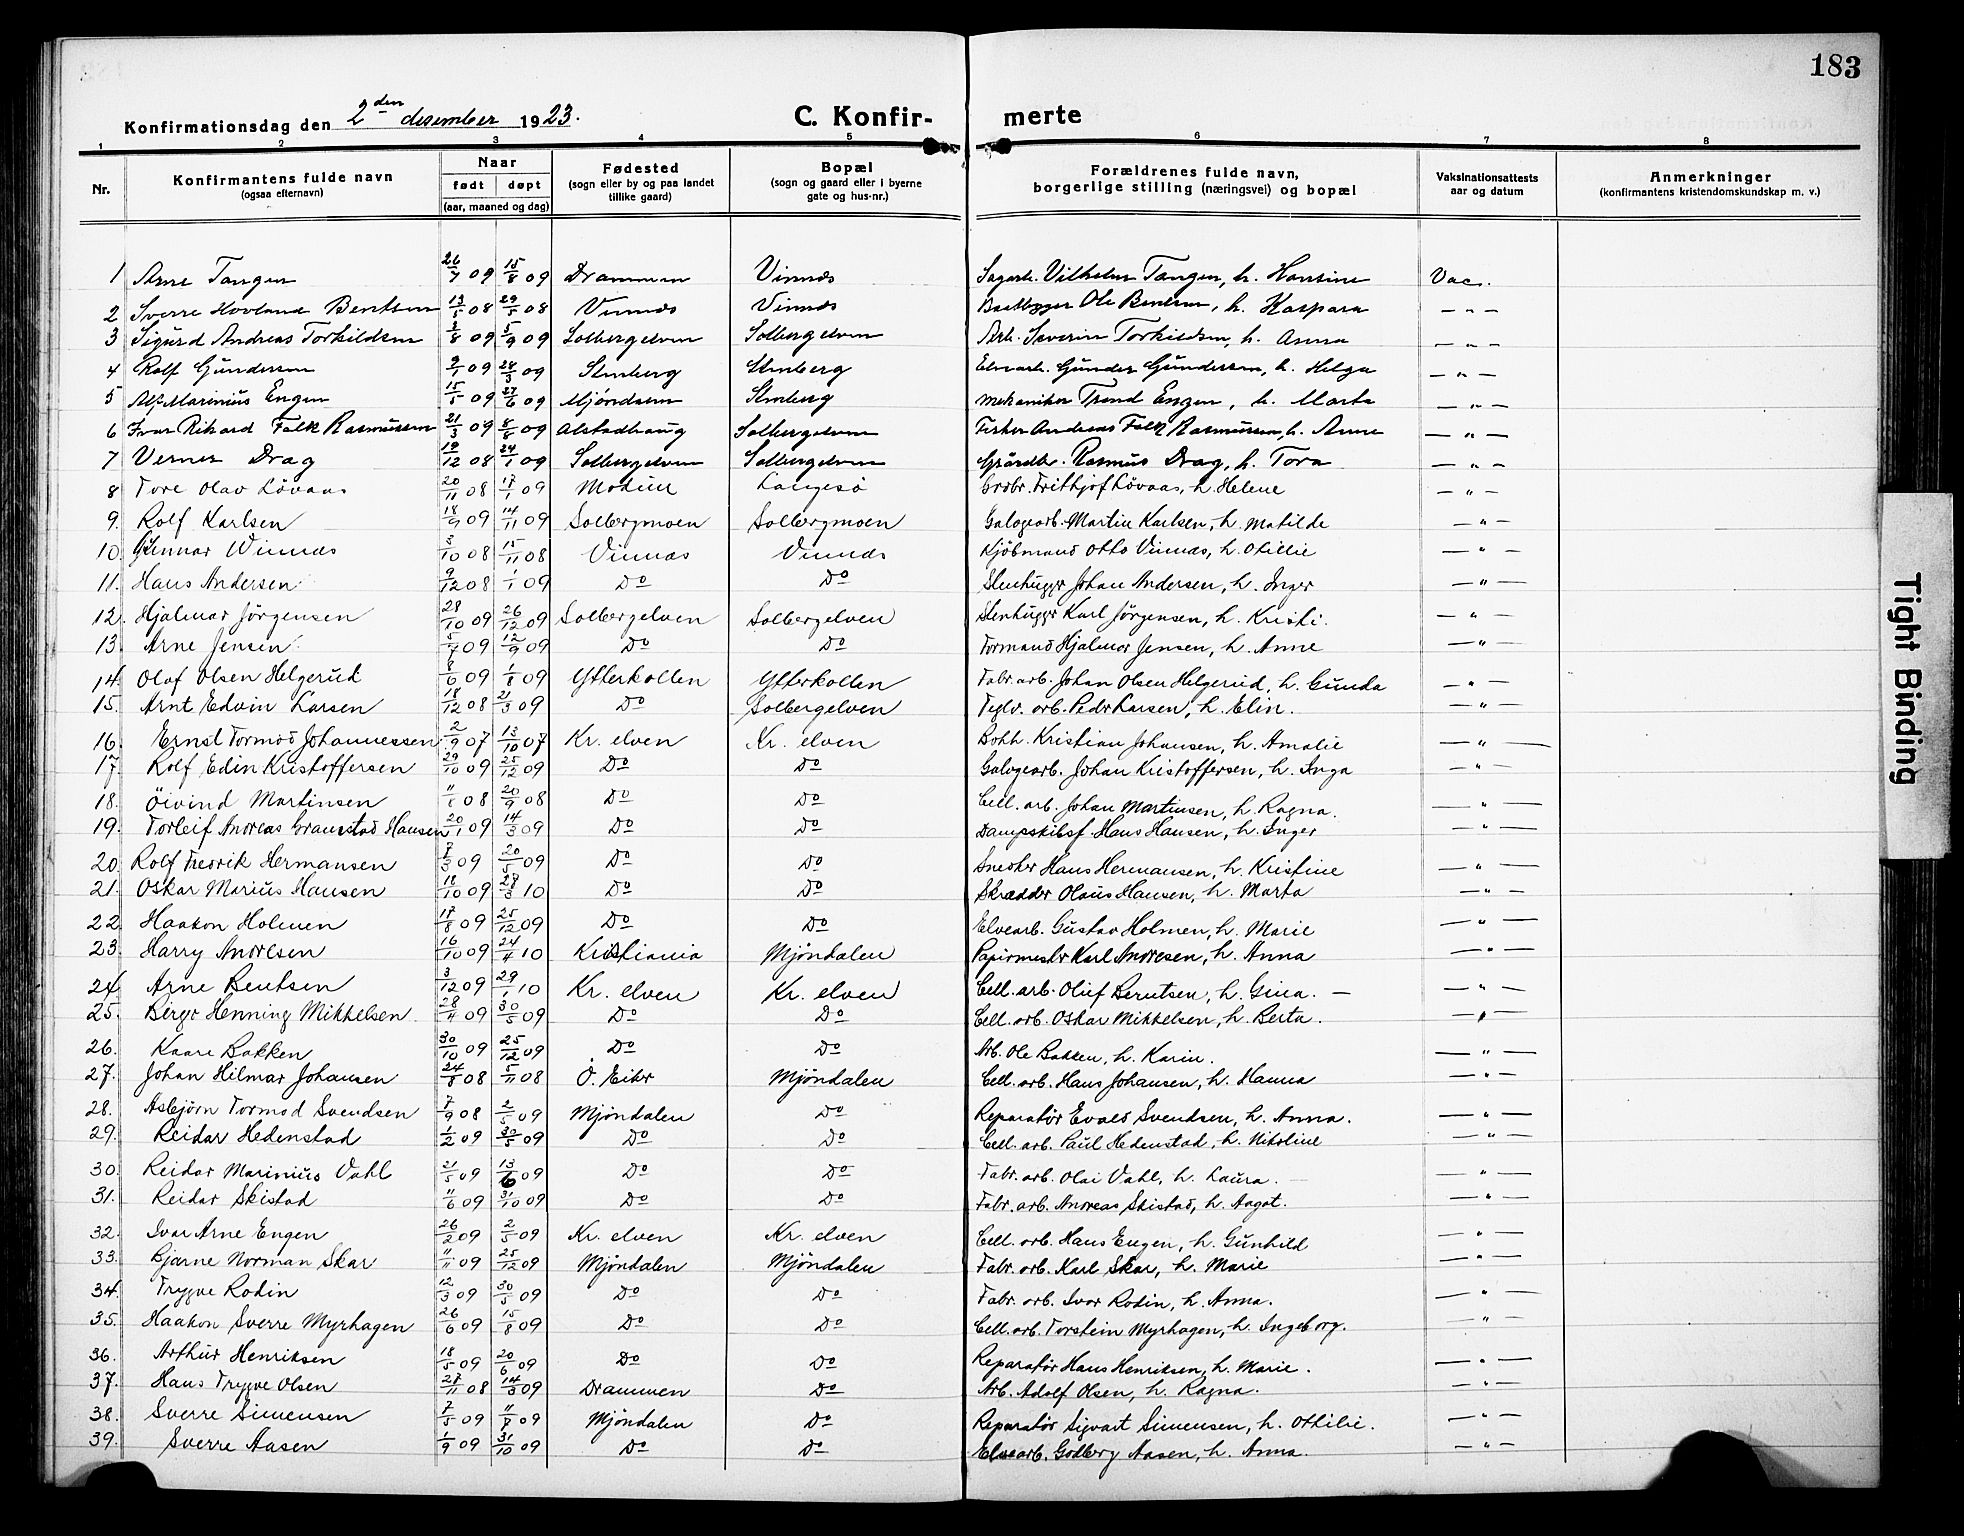 183
Konfirmationsdag den 2den desember 1923.
C. Konfir- merte
1 2 3 4 5 6 7 8
Nr. Konfirmantens fulde navn (ogsaa efternavn) Naar født døpt (aar, maaned og dag) Fødested (sogn eller by og paa landet tillike gaard) Bopæl (sogn og gaard eller i byerne gate og hus-nr.) Forældrenes fulde navn, borgerlige stilling (næringsvei) og bopæl Vaksinationsattests aar og datum Anmerkninger (konfirmantens kristendomskundskap m. v.)
1 Arne Tangen 26/7 09 15/8 09 Drammen Vinnæs Sagarb. Vilhelm Tangen, h. Hansine Vac.
2 Sverre Hovland Bentsen 13/5 08 29/5 08 Vinnæs Vinnæs Baatbygger Ole Bentsen, h. Kaspara — " —
3 Sigurd Andreas Torkildsen 3/8 09 5/9 09 Solbergelven Solbergelven Arb. Severin Torkildsen, h. Anna — " —
4 Rolf Gundersen 9/1 09 28/3 09 Stenberg Stenberg Elvearb. Gunder Gundersen, h. Helga — " —
5 Alf Marinius Engen 15/5 09 27/6 09 Mjøndalen Stenberg Mekaniker Trond Engen, h. Marta — " —
6 Ivar Rikard Falk Rasmussen 21/3 09 8/8 09 Alstadhaug Solbergelven Fisker Andreas Falk Rasmussen, h. Anne — " —
7 Verner Drag 19/12 08 24/1 09 Solbergelven Solbergelven Gaardbr. Rasmus Drag, h. Tora — " —
8 Tore Olav Lövaas 20/11 08 17/1 09 Modum Langesö Grdbr. Frithjof Lövaas, h. Helene — " —
9. Rolf Karlsen 18/9 09 14/11 09 Solbergmoen Solbergmoen Galogearb. Martin Karlsen, h. Matilde — " —
10. Gunnar Winnæs 3/10 08 15/11 08 Vinnæs Vinnæs Kjöbmand Otto Vinnæs, h. Otillie — " —
11. Hans Andersen 9/12 08 1/1 09 Do Do Stenhugger Johan Andersen, h. Inger — " —
12. Hjalmar Jörgensen 28/10 09 26/12 09 Solbergelven Solbergelven Stenhugger Karl Jörgensen, h. Kristi. — " —
13. Arne Jensen 5/7 09 12/9 09 Do Do Formand Hjalmar Jensen, h. Anne — " —
14. Olaf Olsen Helgerud 8/6 09 1/8 09 Ytterkollen Ytterkollen Fabr. arb. Johan Olsen Helgerud, h. Gunda — " —
15. Arnt Edvin Larsen 18/12 08 21/3 09 Do Solbergelven Teglv. arb. Peder Larsen, h. Elin. — " —
16. Ernst Tormod Johannessen 2/9 07 13/10 07 Kr. elven Kr. elven Bokh. Kristian Johansen, h. Amalie — " —
17 Rolf Edin Kristoffersen 29/10 09 25/12 09 Do Do Galogearb. Johan Kristoffersen, h. Inga — " —
18. Öivind Martinsen 11/8 08 20/9 08 Do Do Cell. arb. Johan Martinsen, h. Ragna. — " —
19. Torleif Andreas Granstad Hansen 20/1 09 14/3 09 Do Do Dampskibsf. Hans Hansen, h. Inger — " —
20. Rolf Fredrik Hermansen 7/3 09 20/5 09 Do Do Snedker Hans Hermansen, h. Kristine — " —
21. Oskar Marius Hansen 18/10 09 28/3 10 Do Do Skrædder Olaus Hansen, h. Marta — " —
22. Haakon Holmen 17/8 09 25/12 09 Do Do Elvearb. Gustav Holmen, h. Marie — " —
23. Harry Andresen 16/10 09 24/4 10 Kristiania Mjöndalen Papirmester Karl Andresen, h. Anna — " —
24 Arne Bentsen 3/12 09 29/1 10 Kr. elven Kr. elven Cell. arb. Oluf Berntsen, h. Gina. — — " —
25. Birger Henning Mikkelsen 28/11 09 30/5 09 Do Do Cell. arb. Oskar Mikkelsen, h. Berta. — " —
26. Kaare Bakken 30/10 09 25/12 09 Do Do Arb. Ole Bakken, h. Karin. — " —
27. Johan Hilmar Johansen 24/8 08 5/11 08 Ö. Eiker Mjöndalen Cell. arb. Hans Johansen, h. Hanna — " —
28. Asbjörn Tormod Svendsen 7/9 08 2/5 09 Mjöndalen Do Reparatör Evald Svendsen, h. Anna. — " —
29. Reidar Hedenstad 1/2 09 30/5 09 Do Do Cell. arb. Paul Hedenstad, h. Nikoline — " —
30. Reidar Marinius Vahl 21/5 09 13/6 09 Do Do Fabr. arb. Olai Vahl, h. Laura. — " —
31. Reidar Skistad 11/6 09 31/10 09 Do Do Fabr. arb. Andreas Skistad, h. Aagot. — " —
32. Ivar Arne Engen 26/2 09 2/5 09 Kr. elven Kr. elven Cell. arb. Hans Engen, h. Gunhild — " —
33. Bjarne Norman Skar 11/11 09 25/12 09 Mjöndalen Mjöndalen Fabr. arb. Karl Skar, h. Marie — " —
34. Trygve Rodin 12/3 09 30/5 09 Do Do Fabr. arb. Ivar Rodin, h. Anna. — " —
35. Haakon Sverre Myrhagen 26/6 09 15/8 09 Do Do Cell. arb. Torstein Myrhagen, h. Ingeborg. — " —
36. Arthur Henriksen 18/5 09 20/6 09 Do Do Reparatör Hans Henriksen, h. Marie. — " —
37. Hans Trygve Olsen 27/11 08 14/3 09 Drammen Do Arb. Adolf Olsen, h. Ragna. — " —
38. Sverre Simensen 7/5 09 11/7 09 Mjöndalen Do Reparatör Sigvart Simensen, h. Othilie. — " —
39. Sverre Aasen 1/9 09 31/10 09 Do Do Elvearb. Godberg Aasen, h. Anna. — " —
Tight Binding